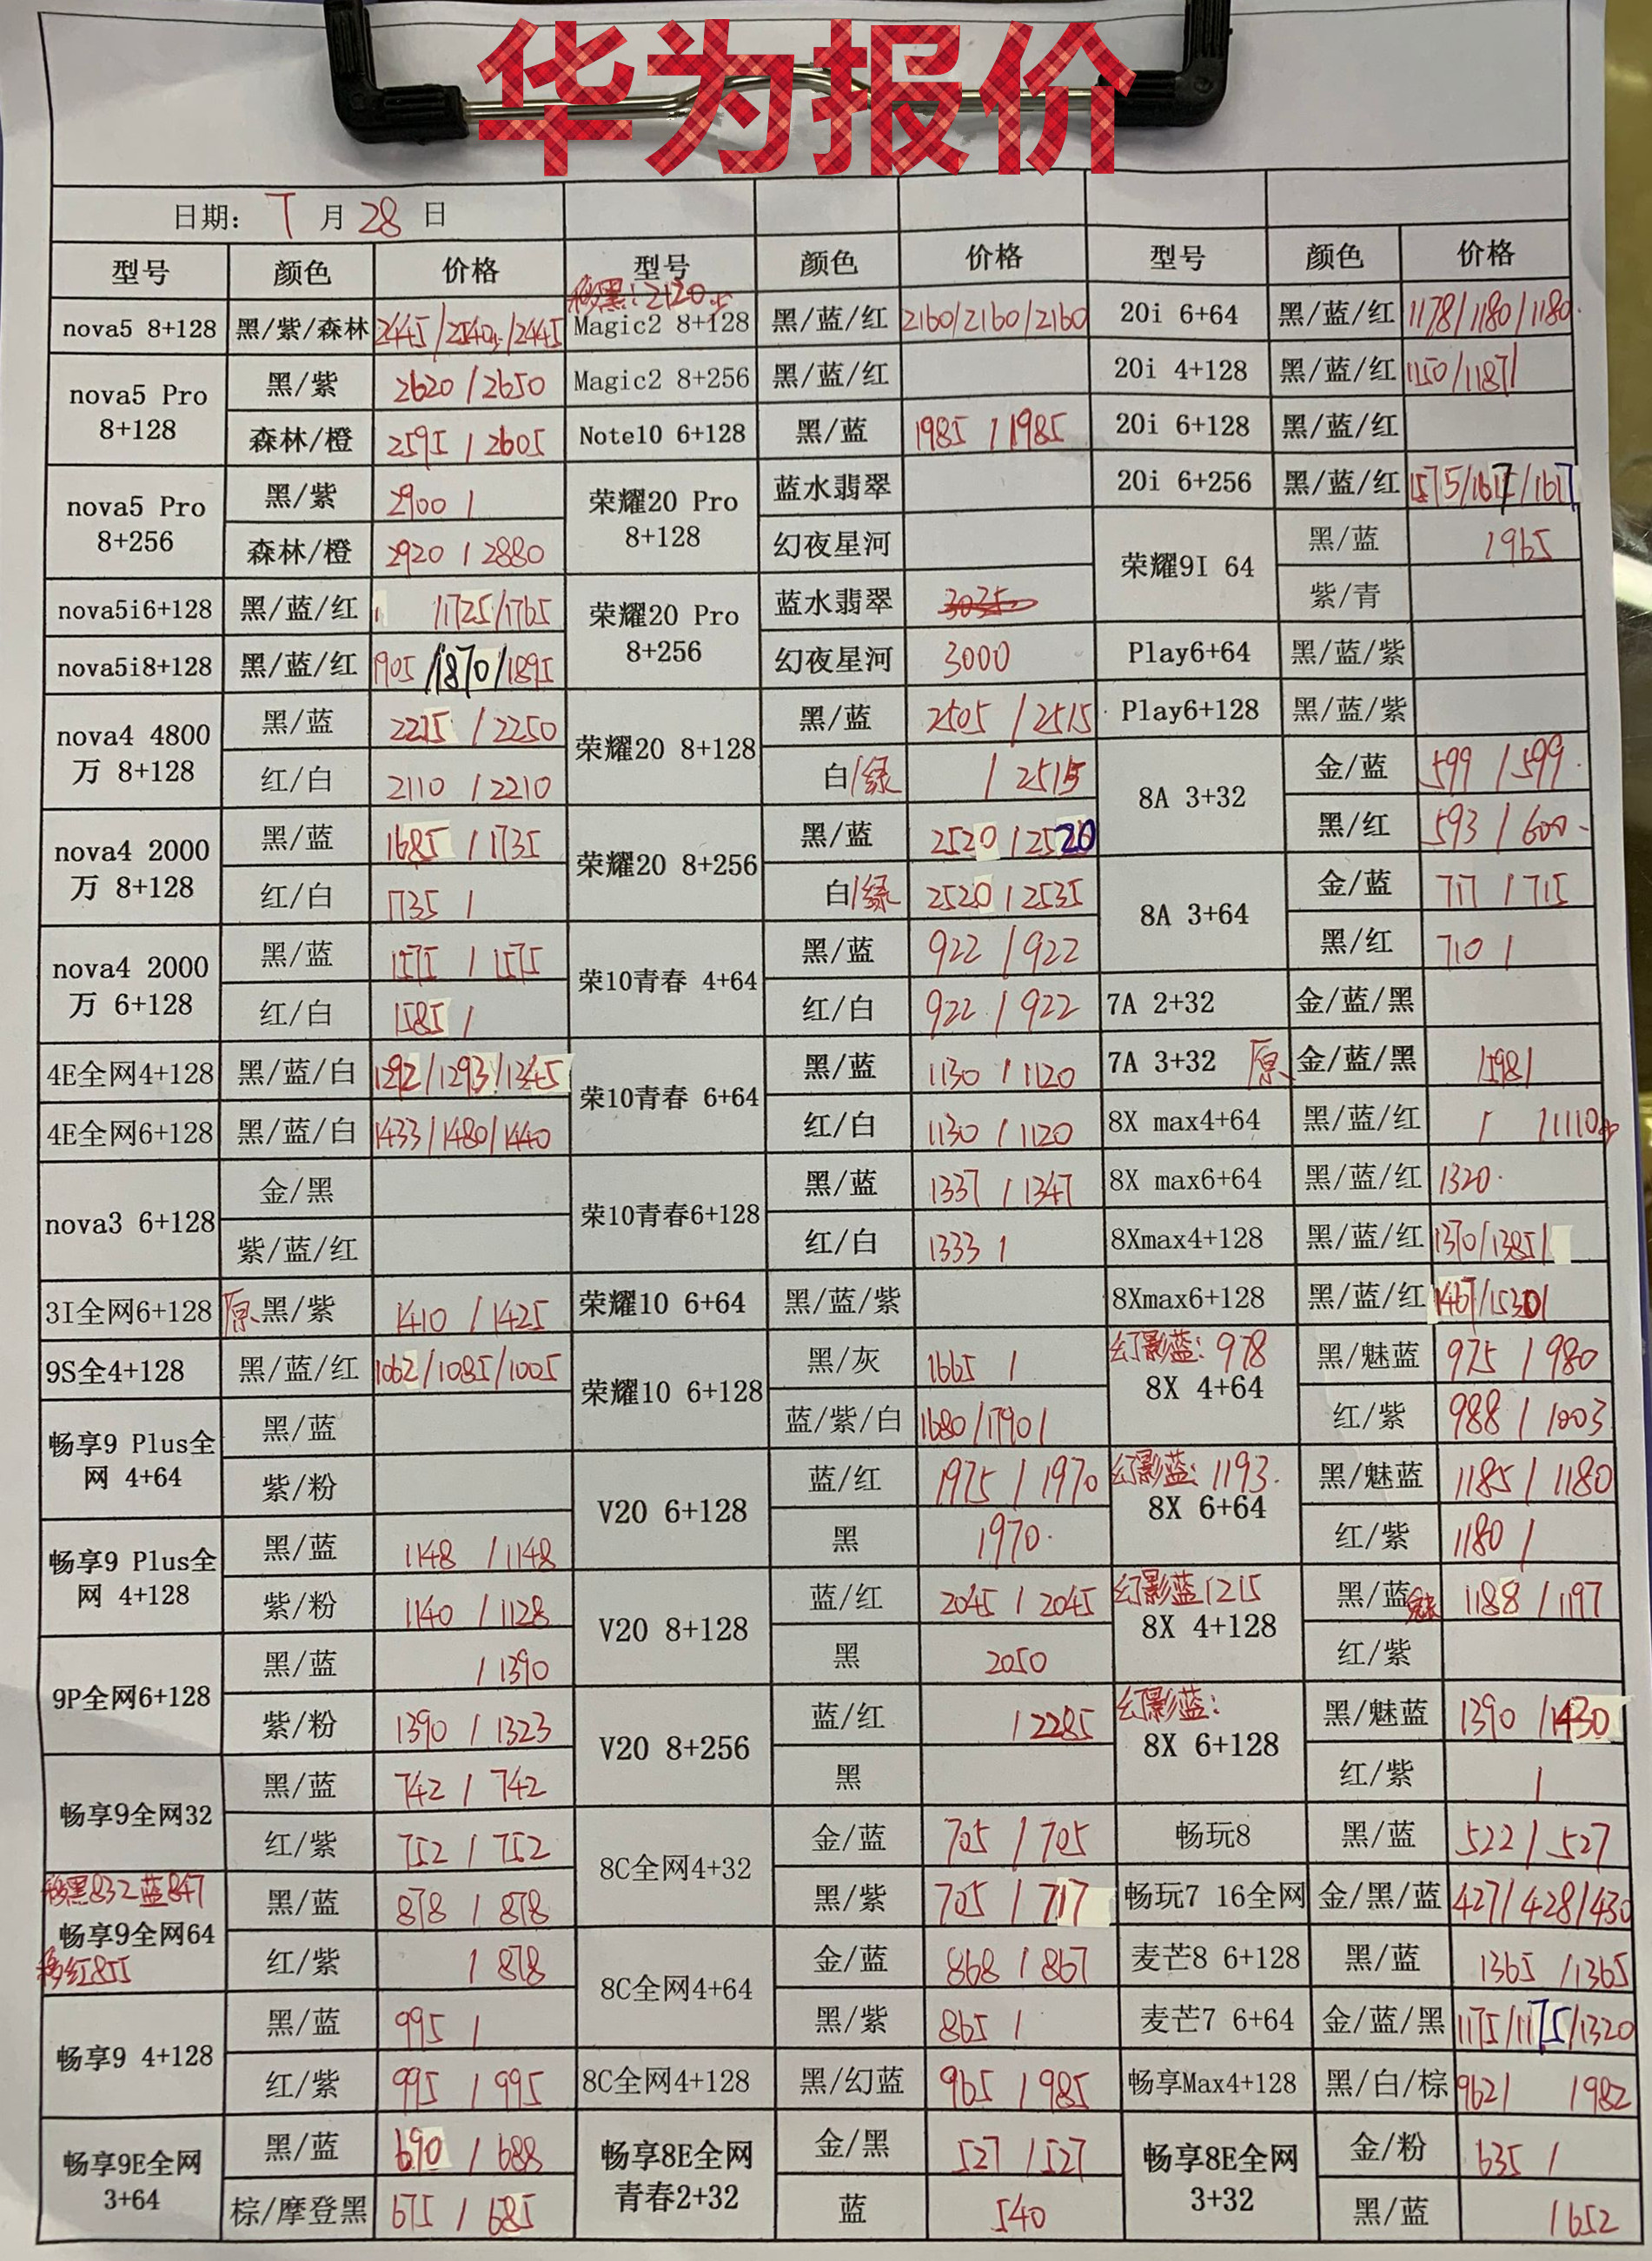 华为报价
日期: 7 月 28 日
型号 颜色 价格 型号 颜色 价格 型号 颜色 价格
移黑:2120
nova5 8+128 黑/紫/森林 2445/2540/2445 Magic2 8+128 黑/蓝/红 2160/2160/2160 20i 6+64 黑/蓝/红 1178/1180/1180
nova5 Pro 8+128 黑/紫 2620/2650 Magic2 8+256 黑/蓝/红 20i 4+128 黑/蓝/红 1150/1187/
森林/橙 2595/2605 Note10 6+128 黑/蓝 1985/1985 20i 6+128 黑/蓝/红
nova5 Pro 8+256 黑/紫 2900/ 荣耀20 Pro 8+128 蓝水翡翠 20i 6+256 黑/蓝/红
森林/橙 2920/2880 幻夜星河 荣耀9I 64 黑/蓝 1965
nova5i6+128 黑/蓝/红 /1725/1765 荣耀20 Pro 8+256 蓝水翡翠 3035 紫/青
nova5i8+128 黑/蓝/红 1905/1870/1895 幻夜星河 3000 Play6+64 黑/蓝/紫
nova4 4800万 8+128 黑/蓝 2215/2250 荣耀20 8+128 黑/蓝 2505/2515 Play6+128 黑/蓝/紫
红/白 2110/2210 白/绿 /2515 8A 3+32 金/蓝 599/599
nova4 2000万 8+128 黑/蓝 1685/1735 荣耀20 8+256 黑/蓝 2520/2520 黑/红 593/600
红/白 1735/ 白/绿 2520/2535 8A 3+64 金/蓝 717/715
nova4 2000万 6+128 黑/蓝 1575/1575 荣10青春 4+64 黑/蓝 922/922 黑/红 710/
红/白 1585/ 红/白 922/922 7A 2+32 金/蓝/黑
4E全网4+128 黑/蓝/白 1292/1293/1345 荣10青春 6+64 黑/蓝 1130/1120 7A 3+32 原 金/蓝/黑 /598/
4E全网6+128 黑/蓝/白 1433/1480/1440 红/白 1130/1120 8X max4+64 黑/蓝/红 / /1110
nova3 6+128 金/黑 荣10青春6+128 黑/蓝 1337/1347 8X max6+64 黑/蓝/红 1320
紫/蓝/红 红/白 1333/ 8Xmax4+128 黑/蓝/红 1370/1385/
3I全网6+128 原 黑/紫 1410/1425 荣耀10 6+64 黑/蓝/紫 8Xmax6+128 黑/蓝/红 1467/1530/
9S全4+128 黑/蓝/红 1062/1085/1005 荣耀10 6+128 黑/灰 1665/ 幻影蓝:978 8X 4+64 黑/魅蓝 975/980
畅享9 Plus全网 4+64 黑/蓝 蓝/紫/白 1680/1790/ 红/紫 988/1003
紫/粉 V20 6+128 蓝/红 1975/1970 幻影蓝:1193 8X 6+64 黑/魅蓝 1185/1180
畅享9 Plus全网 4+128 黑/蓝 1148/1148 黑 1970 红/紫 1180/
紫/粉 1140/1128 V20 8+128 蓝/红 2045/2045 幻影蓝1215 8X 4+128 黑/蓝 魅 1188/1197
9P全网6+128 黑/蓝 /1390 黑 2050 红/紫
紫/粉 1390/1323 V20 8+256 蓝/红 /2285 幻影蓝: 8X 6+128 黑/魅蓝 1390/1430
畅享9全网32 黑/蓝 742/742 黑 红/紫 /
红/紫 752/752 8C全网4+32 金/蓝 705/705 畅玩8 黑/蓝 522/527
移黑832蓝847
畅享9全网64 黑/蓝 878/878 黑/紫 705/717 畅玩7 16全网 金/黑/蓝 427/428/430
移红855
红/紫 /878 8C全网4+64 金/蓝 868/867 麦芒8 6+128 黑/蓝 1365/1365
畅享9 4+128 黑/蓝 995/ 黑/紫 865/ 麦芒7 6+64 金/蓝/黑 1175/1175/1320
红/紫 995/995 8C全网4+128 黑/幻蓝 965/985 畅享Max4+128 黑/白/棕 962/ /982
畅享9E全网 3+64 黑/蓝 690/688 畅享8E全网青春2+32 金/黑 527/527 畅享8E全网 3+32 金/粉 635/
棕/摩登黑 675/685 蓝 540 黑/蓝 /652